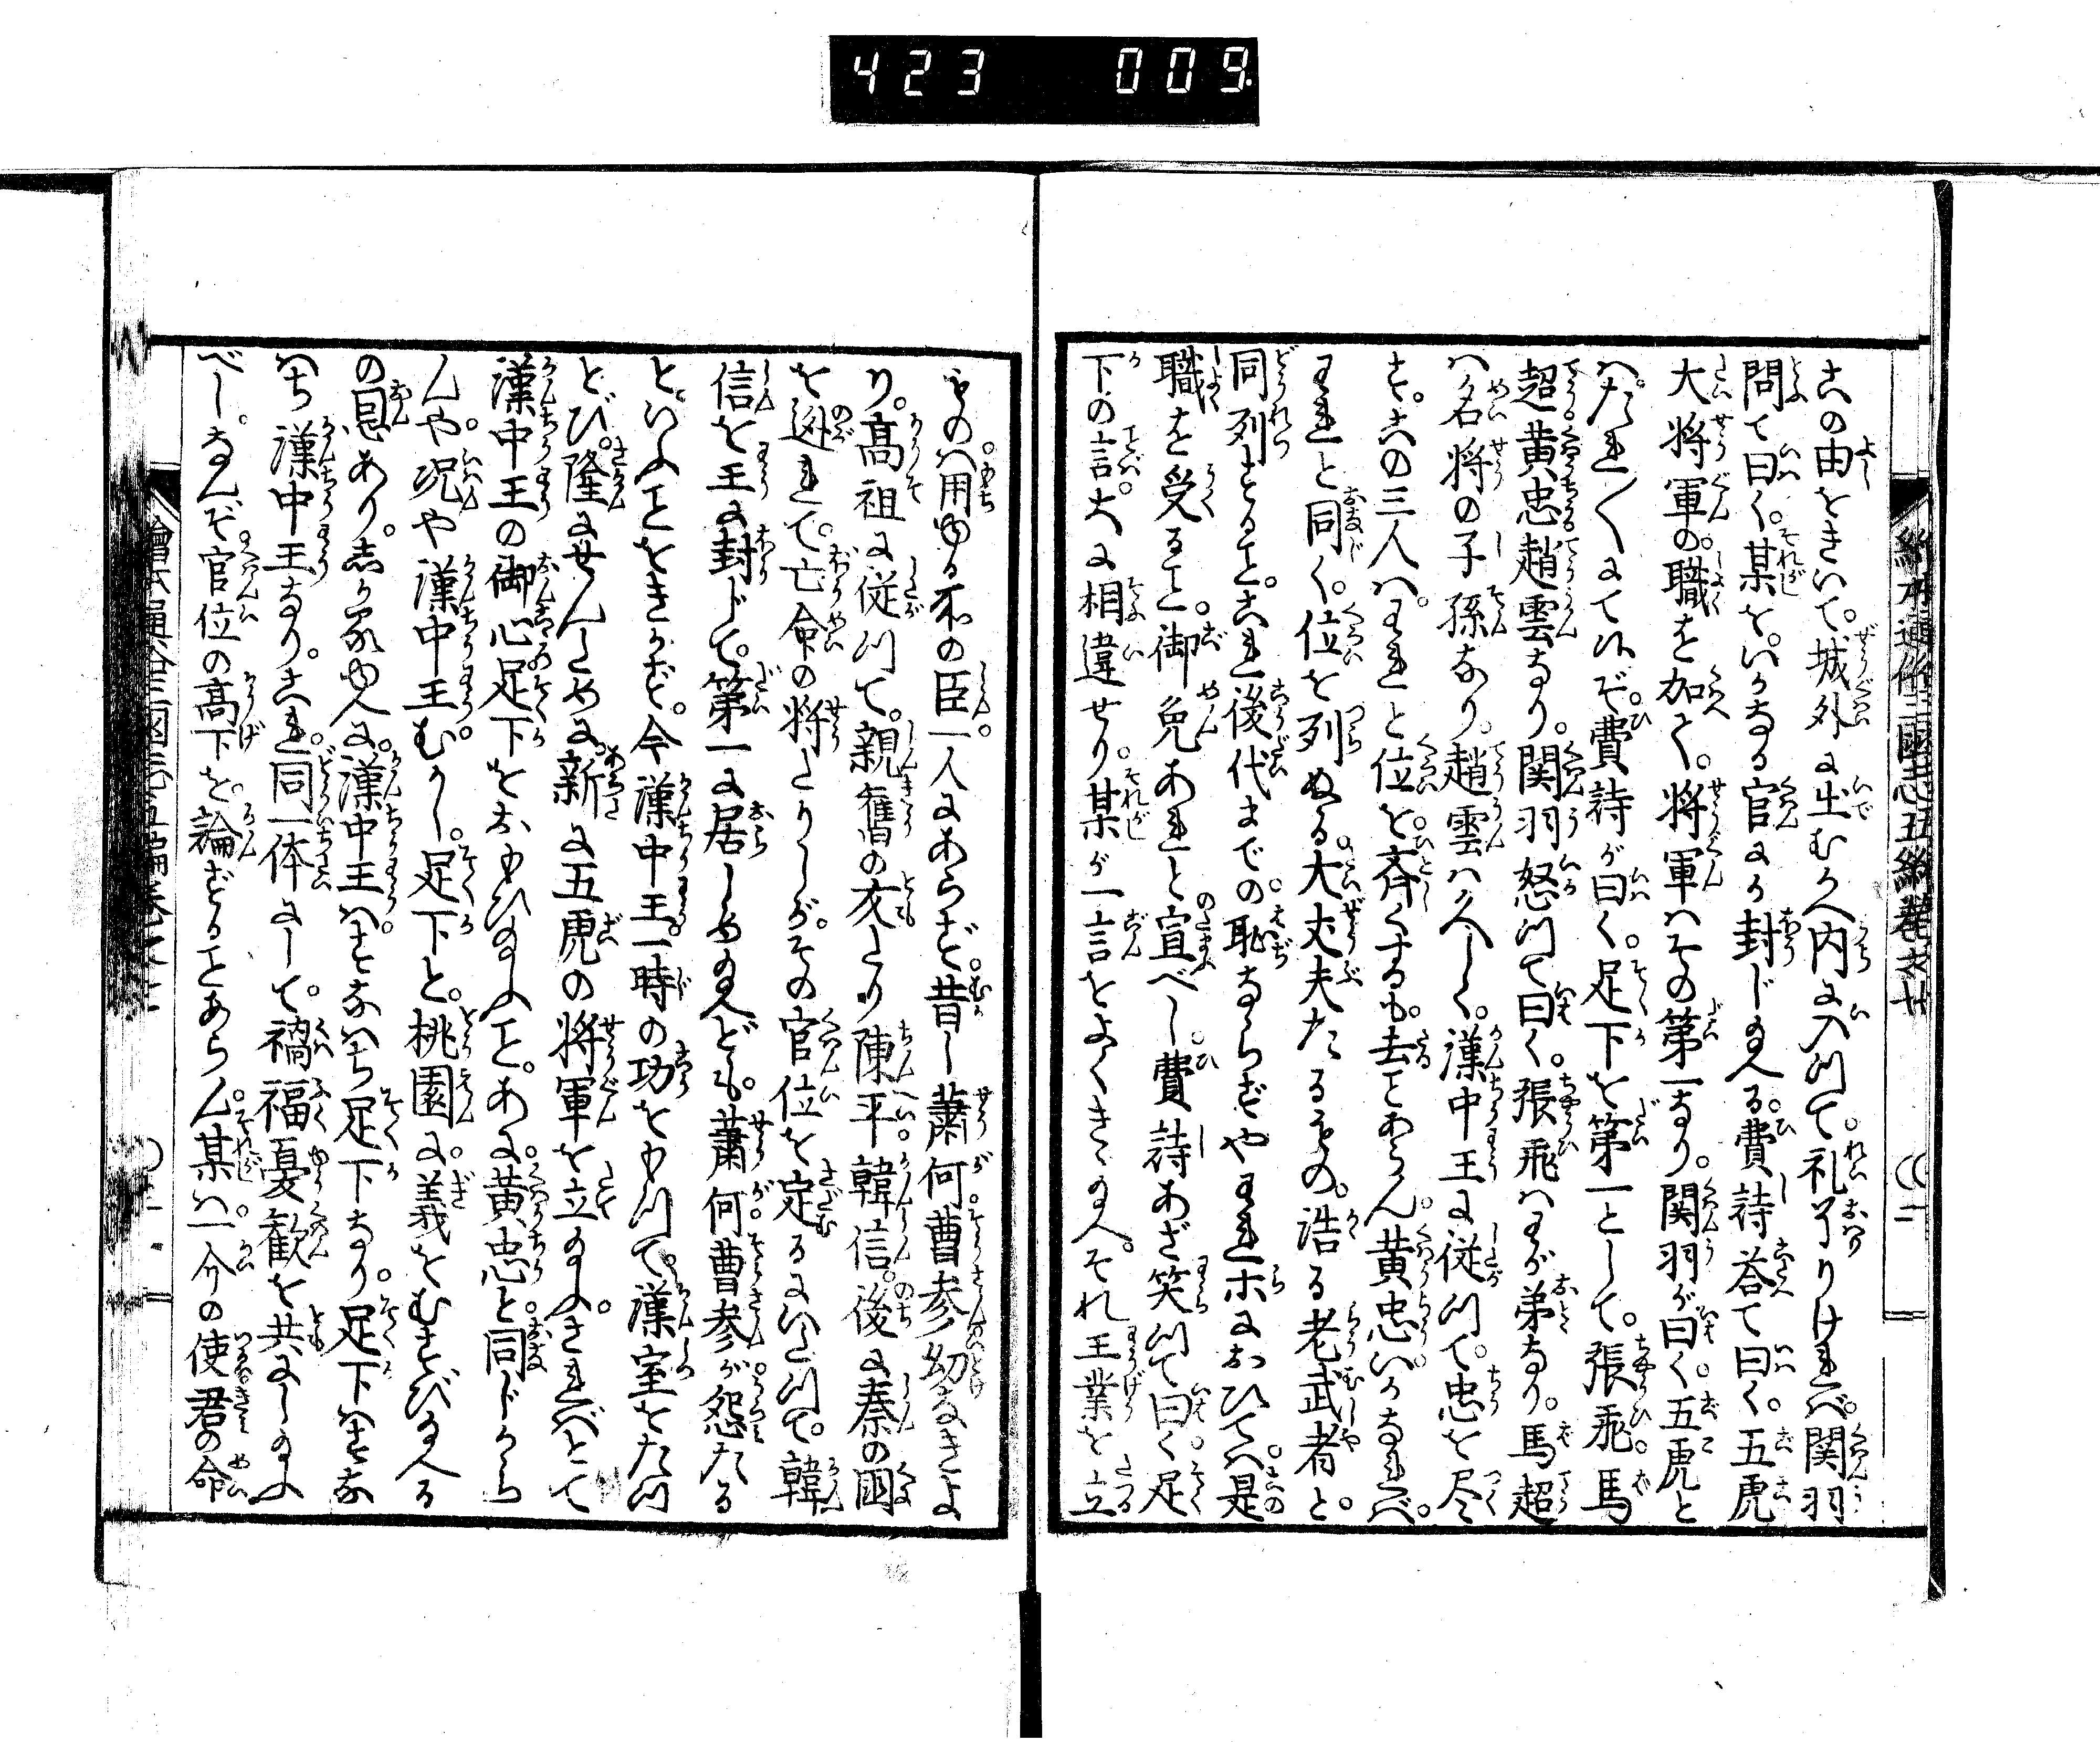 423 009
この由をきいて。城外に出むかへ内に入つて。礼畢りければ。関羽
問て曰く。某を。いかなる官にか封じ給へる。費詩答て曰く。五虎
大将軍の。職を加へて。将軍はその第一なり。関羽が曰く。五虎と
はたれ〳〵にて候ぞ。費詩が曰く。足下を第一として。張飛。馬
超黄忠趙雲なり。関羽怒つて曰く。張飛はわが弟なり。馬超
は名将の子孫なり。趙雲は久しく。漢中王に従つて。忠を尽
す。この三人は。われと位を。斉くするも。去ことあらん。黄忠いかなれば。
われと同く。位を列ぬる。大丈夫たるもの。浩る老武者と。
同列すること。これ後代までの。恥ならずやわれホにおひては。是
職を受ること。御免あれと宣べし。費詩あざ笑つて曰く。足
下の言。大に相違せり。某が一言をよくきゝ給へ。それ王業を立
ものは。用ゆる所の臣。一人にあらず。昔し蕭何。曹参幼なきよ
り。高祖に従つて。親舊の友たり陳平。韓信。後に秦の国
を逃れて。亡命の将たりしが。その官位を定るにいたつて。韓
信を王に封じて。第一に居しめ給へども。蕭何。曹参が。怨たる
と。いふことをきかず。今漢中王。一時の功をもつて。漢室をたつ
とび。隆にせんため。新に五虎の将軍を立給ふ。さればとて
漢中王の御心足下をおもひ給ふこと。あに。黄忠と。同じから
んや。況や漢中王。むかし。足下と。桃園に。義をむすび給へる
の恩あり。しかるゆへに。漢中王はすなはち足下なり。足下はすな
はち漢中王なり。これ。同一体にして。禍福憂歓を共にし給ふ
べし。なんぞ官位の高下を。論ずることあらん。某は。一介の使君の命